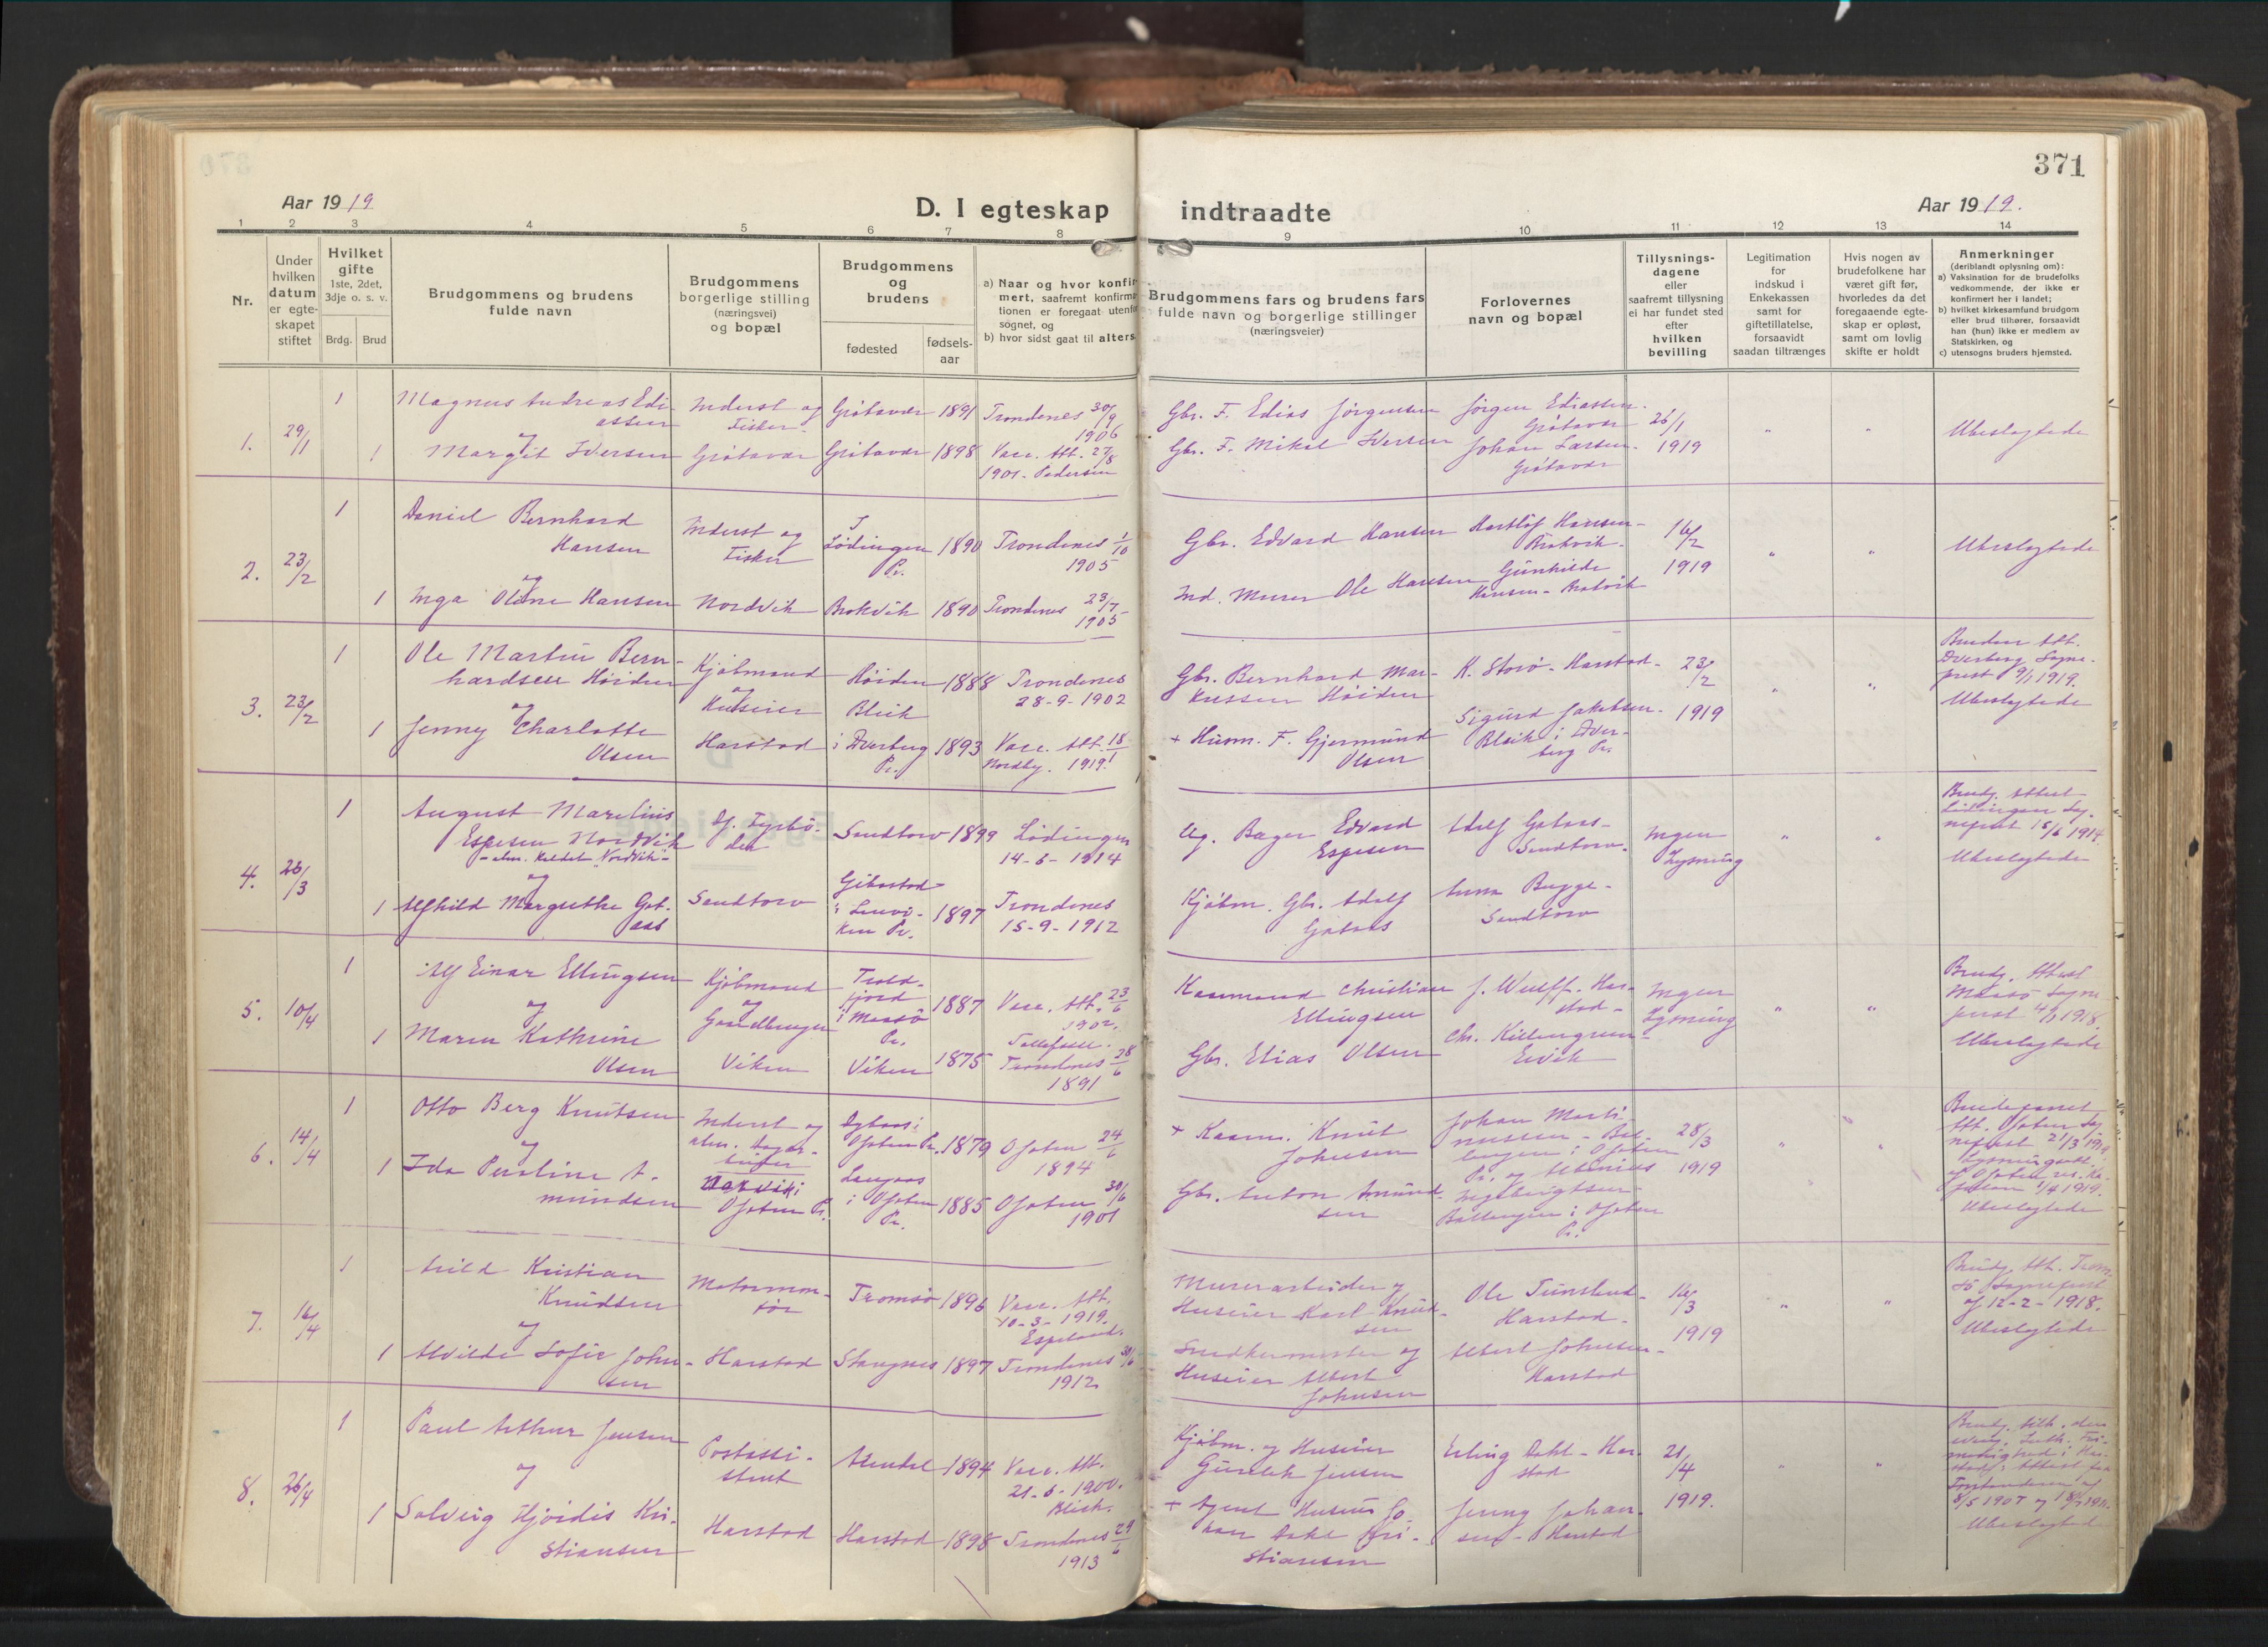 371
Aar 1919
D. I egteskap indtraadte
Aar 1919.
1 2 3 4 5 6 7 8 9 10 11 12 13 14
Nr.
Under
hvilken
datum
er egte-
skapet
stiftet
Hvilket
gifte
1ste, 2det,
3dje o. s. v.
Brdg. Brud
Brudgommens og brudens
fulde navn
Brudgommens
borgerlige stilling
(næringsvei)
og bopæl
Brudgommens
og
brudens
fødested
fødsels-
aar
a) Naar og hvor konfir-
mert, saafremt konfirma-
tionen er foregaat utenfor
sognet, og
b) hvor sidst gaat til alters
Brudgommens fars og brudens fars
fulde navn og borgerlige stillinger
(næringsveier)
Forlovernes
navn og bopæl
Tillysnings-
dagene
eller
saafremt tillysning
ei har fundet sted
efter
hvilken
bevilling
Legitimation
for
indskud i
Enkekassen
samt for
giftetillatelse,
forsaavidt
saadan tiltrænges
Hvis nogen av
brudefolkene har
været gift før,
hvorledes da det
foregaaende egte-
skap er opløst,
samt om lovlig
skifte er holdt
Anmerkninger
(deriblandt oplysning om):
a) Vaksination for de brudefolks
vedkommende, der ikke er
konfirmert her i landet;
b) hvilket kirkesamfund brudgom
eller brud tilhører, forsaavidt
han (hun) ikke er medlem av
Statskirken, og
c) utensogns bruders hjemsted.
1. 29/1
1
Magnus Andreas Edi-
assen
og
1 Margit Iversen
Inderst og
Fisker
Grötavær
Grötavær 1891
Grötavær 1898
Trondenes 30/9
1906
Vacc. Att. 27/8
1901. Pedersen
Gbr. F. Edias Jörgensen
Gbr. F. Mikal Iversen
Jörgen Ediassen
Grötavær
Johan Larsen
Grötavær
26/1
1919
" "
Ubeslegtede
2. 23/2
1
Daniel Bernhard
Hansen
og
1 Inga Oline Hansen
Inderst og
Fisker
Nordvik
I
Lödingen 1890
Pr.
Brokvik 1890
Trondenes 1/10
1905
Trondenes 23/7
1905
Gbr. Edvard Hansen
Ind. Murer Ole Hansen
Hansen-
Brokvik.
Gunhilde
Hansen - Brokvik
16/2
1919
" "
Ubeslegtede
3. 23/2
1
Ole Martin Bern-
hardsen Höiden
og
1 Jenny Charlotte
Olsen
Kjöbmand
og
Huseier
Harstad
Höiden 1888
Bleik
i Dverberg 1893
Pr.
Trondenes
28-9-1902
Vacc. Att. 18/1
Nordby. 1919.
Gbr. Bernhard Mar-
kussen Höiden
+ Husm. F. Gjermund
Olsen
K. Storö - Harstad-
Sigurd Jakobsen-
Bleik i Dver-
berg Pr.
23/2
1919
" "
Bruden Att.
Dverberg Sogne-
prest 9/1 1919.
Ubeslegtede
4. 26/3
1
August Marelius
Espesen Nordvik
- alm. kaldet "Nordvik"-
og
1 Alfhild Margrethe Got-
aas
Fyrbö-
der
Sandtorv
Sandtorv 1899
Gibostad
i Lenvi- 1897
ken Pr.
Lödingen
14-6-1914
Trondenes
15-9-1912
Ug. Bager Edvard
Espesen
Kjöbm. Gbr. Adolf
Gotaas
Adolf Gotaas-
Sandtorv.
Anna Bugge-
Sandtorv
Ingen
Lysning
" "
Brudg. Attest
Lödingen Sog-
neprest 15/6 1914
Ubeslegtede
5. 10/4
1
Alf Einar Ellingsen
og
1 Maren Kathrine
Olsen
Kjöbmand
og
Gaardbruger
Viken
Trold-
fjord 1887
i Maasö
Pr.
Viken 1875
Vacc. Att. 23/6
1902.
Trondenes 28/6
1891
Kaarmand Christian
Ellingsen
Gbr. Elias Olsen
J. Wulff. Har-
stad-
Chr. Killengreen-
Ervik
Ingen
Lysning
" "
Brudg. Attest
Maasö Sogne-
prest 1918.
Ubeslegtede
6. 14/4
1
Otto Berg Knutsen
og
1 Ida Pauline A-
mundsen
Inderst og
alm. Dagar-
beider
Narvik i
Ofoten Pr.
Ofoten Pr. 1879
i Ofoten 1885
Pr.
Ofoten 24/6
1894
Ofoten 30/6
1901
+ Kaarm. Knut
Johnsen
Gbr. Anton Amund-
sen
Johan Marti-
nussen - Bal-
langen i Ofoten
Pr. og
Ingebrigtsen-
Ballangen i Ofoten
Pr.
28/3
1919
" "
Brudeparret
Att. Ofoten Sog-
neprest 21/3 1919
Lysningsatt.
af Ofoten res. Ka-
pellan 1/4 1919.
Ubeslegtede
7. 16/4
1
Arild Kristian
Knudsen
og
1 Alvilde Sofie John-
sen
Motormon-
tör
Harstad
Tromsö 1896
Stangnes 1897
Vacc. Att.
10-3-1919.
Espeland.
Trondenes 30/6
1912
Murerarbeider og
Huseier Karl Knud-
sen
Snedkermester og
Huseier Albert
Johnsen
Ole
Harstad.
Albert Johnsen-
Harstad
16/3
1919
" "
Brudg. Att. Trom-
sö Sogneprest
af 12-2-1918.
Ubeslegtede
8. 26/4
1
Paul Arthur Jensen
og
1 Solveig Hjördis Kri-
stiansen
Postassi-
stent
Harstad
Arendal 1894
Harstad 1898
Vacc. Att.
21-6-1900.
Trondenes 29/6
1913
Kjöbm. og Huseier
Jensen
+ Agent Huseier Jo-
han Dahl Kri-
stiansen
Erling Dahl - Har-
stad
Jenny Johan-
sen - Harstad
21/4
1919.
" "
Brudg. tilh. den
evang. Luth. Fri-
menighed i Har-
stad; Attest fra
Forstanderen af
Ubeslegtede